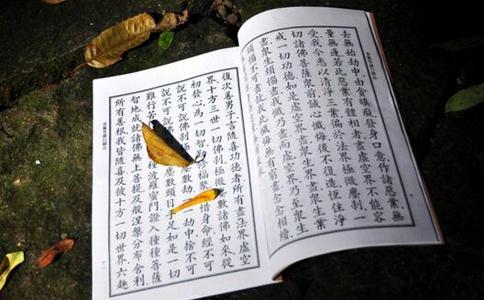 去無始劫中由貪瞋癡發身口意作諸惡業無
量無邊若此惡業有體相者盡虛空界不能容
受我今悉以清淨三業徧於法界極微塵剎一
切諸佛菩薩眾前誠心懺悔後不復造恆住淨
戒一切功德如是虛空界盡眾生界盡眾生業
盡眾生煩惱盡我懺乃盡而虛空界乃至眾生
煩惱不可盡故我此懺悔無有窮盡念念相續
復次善男子言隨喜功德者所有盡法界虛空
界十方三世一切佛剎極微塵數諸佛如來從
初發心為一切智福聚惜身命經不可
說不可說佛剎極數劫一劫中捨不可
說不可說佛剎塵數頭目手足如是一切
難行苦行種波羅蜜門證入種種菩薩
智地成就諸佛無上菩提及般涅槃分布舍利
所有善根我皆隨喜及彼十方一切世界六趣